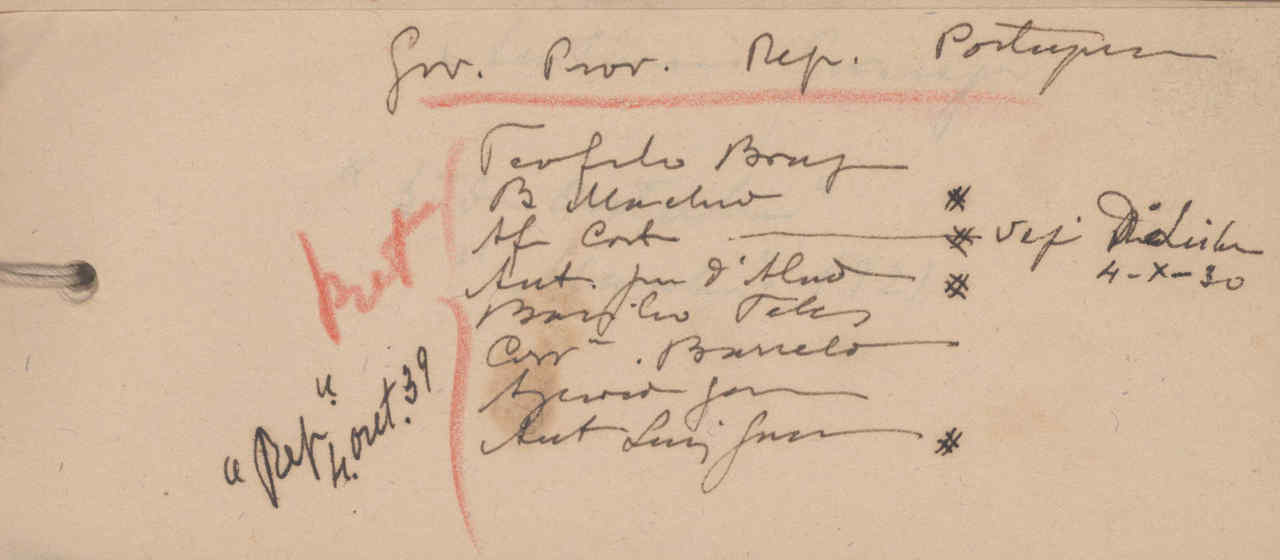 Gov. Prov. Rep. Portuguesa
Teofilo Braga
B Machado #
Af Costa # Vej Diário Lisboa
4-X-30
Ant. José d'Almd #
Basilio Teles
Corrª. Barreto
Azevedo Gomes
Ant Luiz Gomes #
"Rep" 4. out. 39